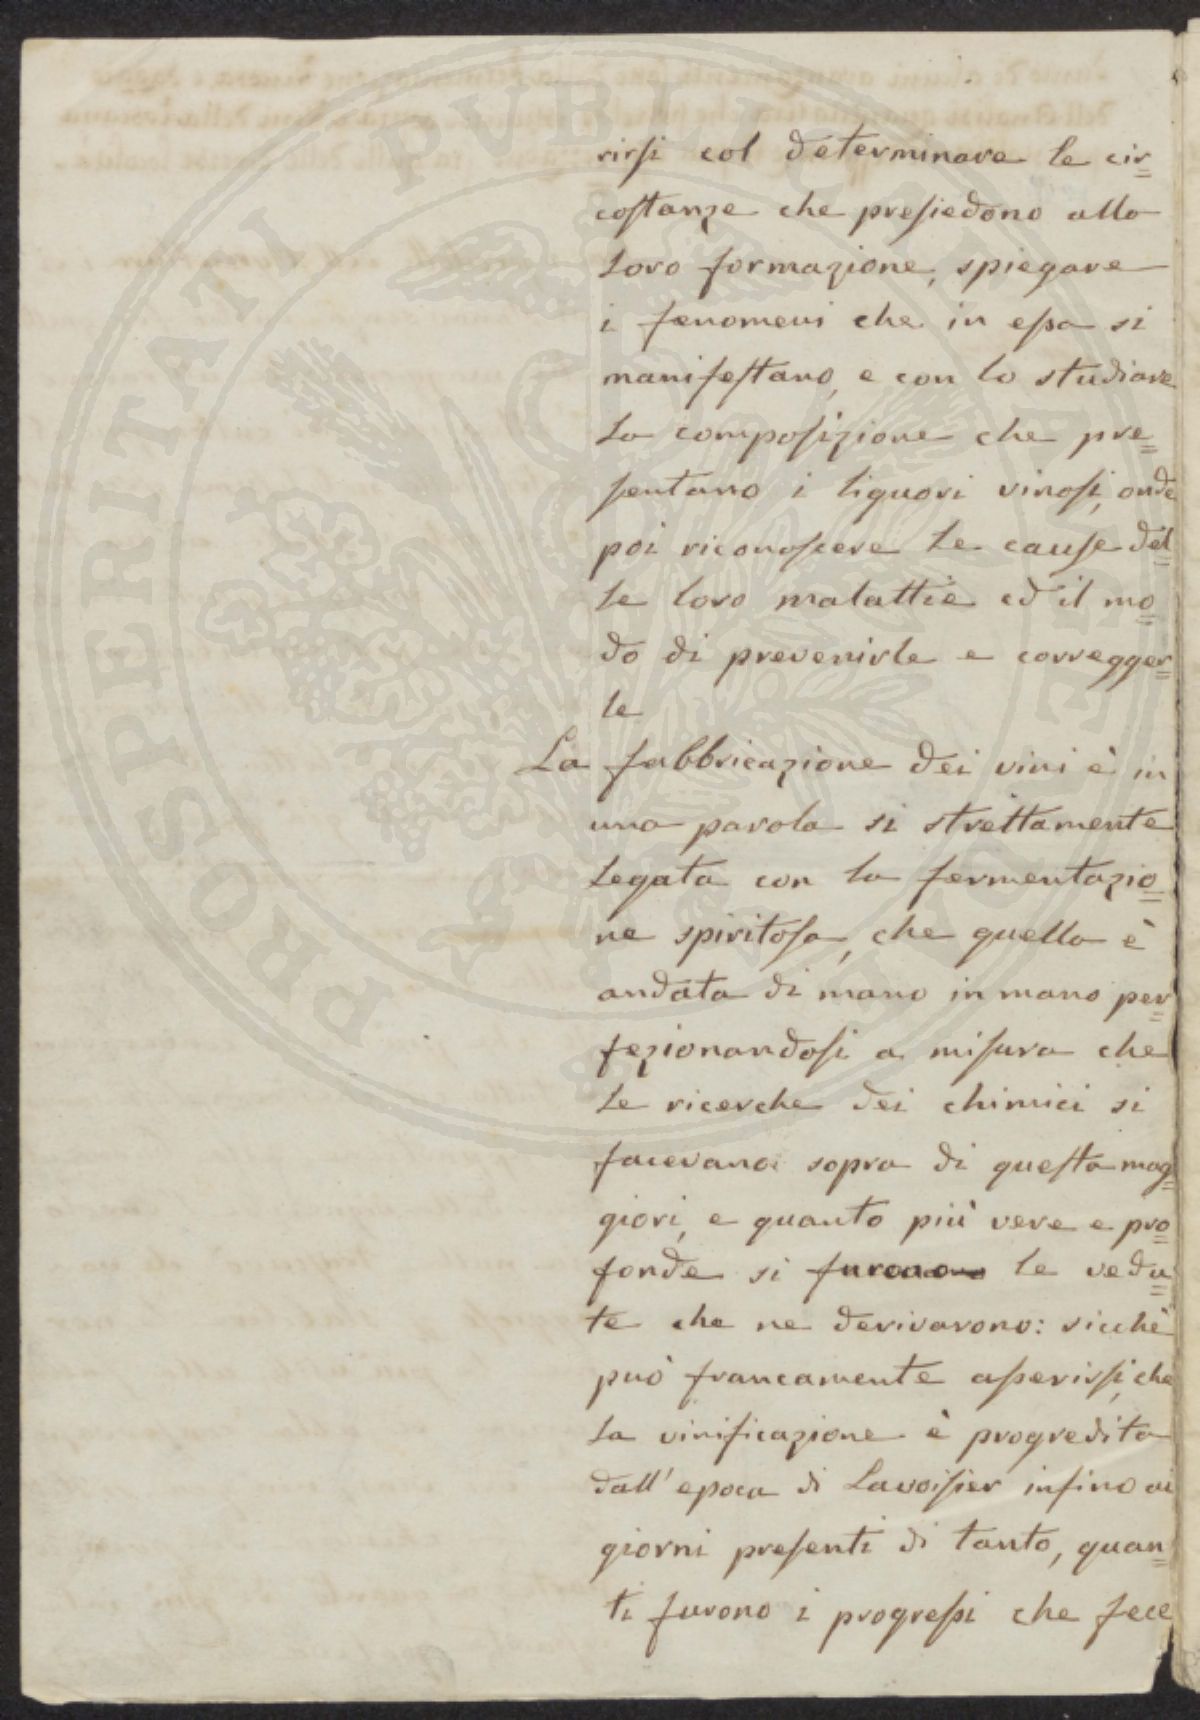 rirsi col determinare le cir=
costanze che presiedono alla
loro formazione, spiegare
i fenomeni che in essa si
manifestano, e con lo studiare
la composizione che pre=
sentano i liquori vinosi, onde
poi riconoscere le cause del=
le loro malattie ed il mo=
do di prevenirle e corregger=
le
La fabbricazione dei vini è in
una parola si strettamente
legata con la fermentazio=
ne spiritosa, che quella è
andata di mano in mano per=
fezionandosi a misura che
le ricerche dei chimici si
facevano sopra di questa mag=
giori, e quanto più vere e pro=
fonde si furono le vedu=
te che ne derivarono: sicchè
può francamente asserirsi, che
la vinificazione è progredita
dall'epoca di Lavoisier infino ai
giorni presenti di tanto, quan=
ti furono i progressi che fece
PROSPERITATI PUBLICAE AUGENDAE